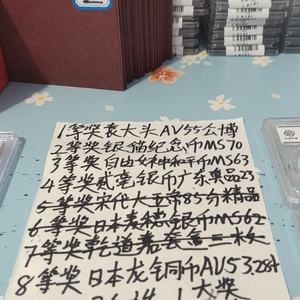 1等奖袁大头AV55公博
2等奖银猫纪念币MS70
3等奖自由女神和平币MS63
4等奖贰毫银币广东奥品23
5等奖宋代大正常85分精品
6等奖日本麦穗银币MS62
7等奖乾道嘉
8等奖日本龙铜币AV53,28Y
大奖